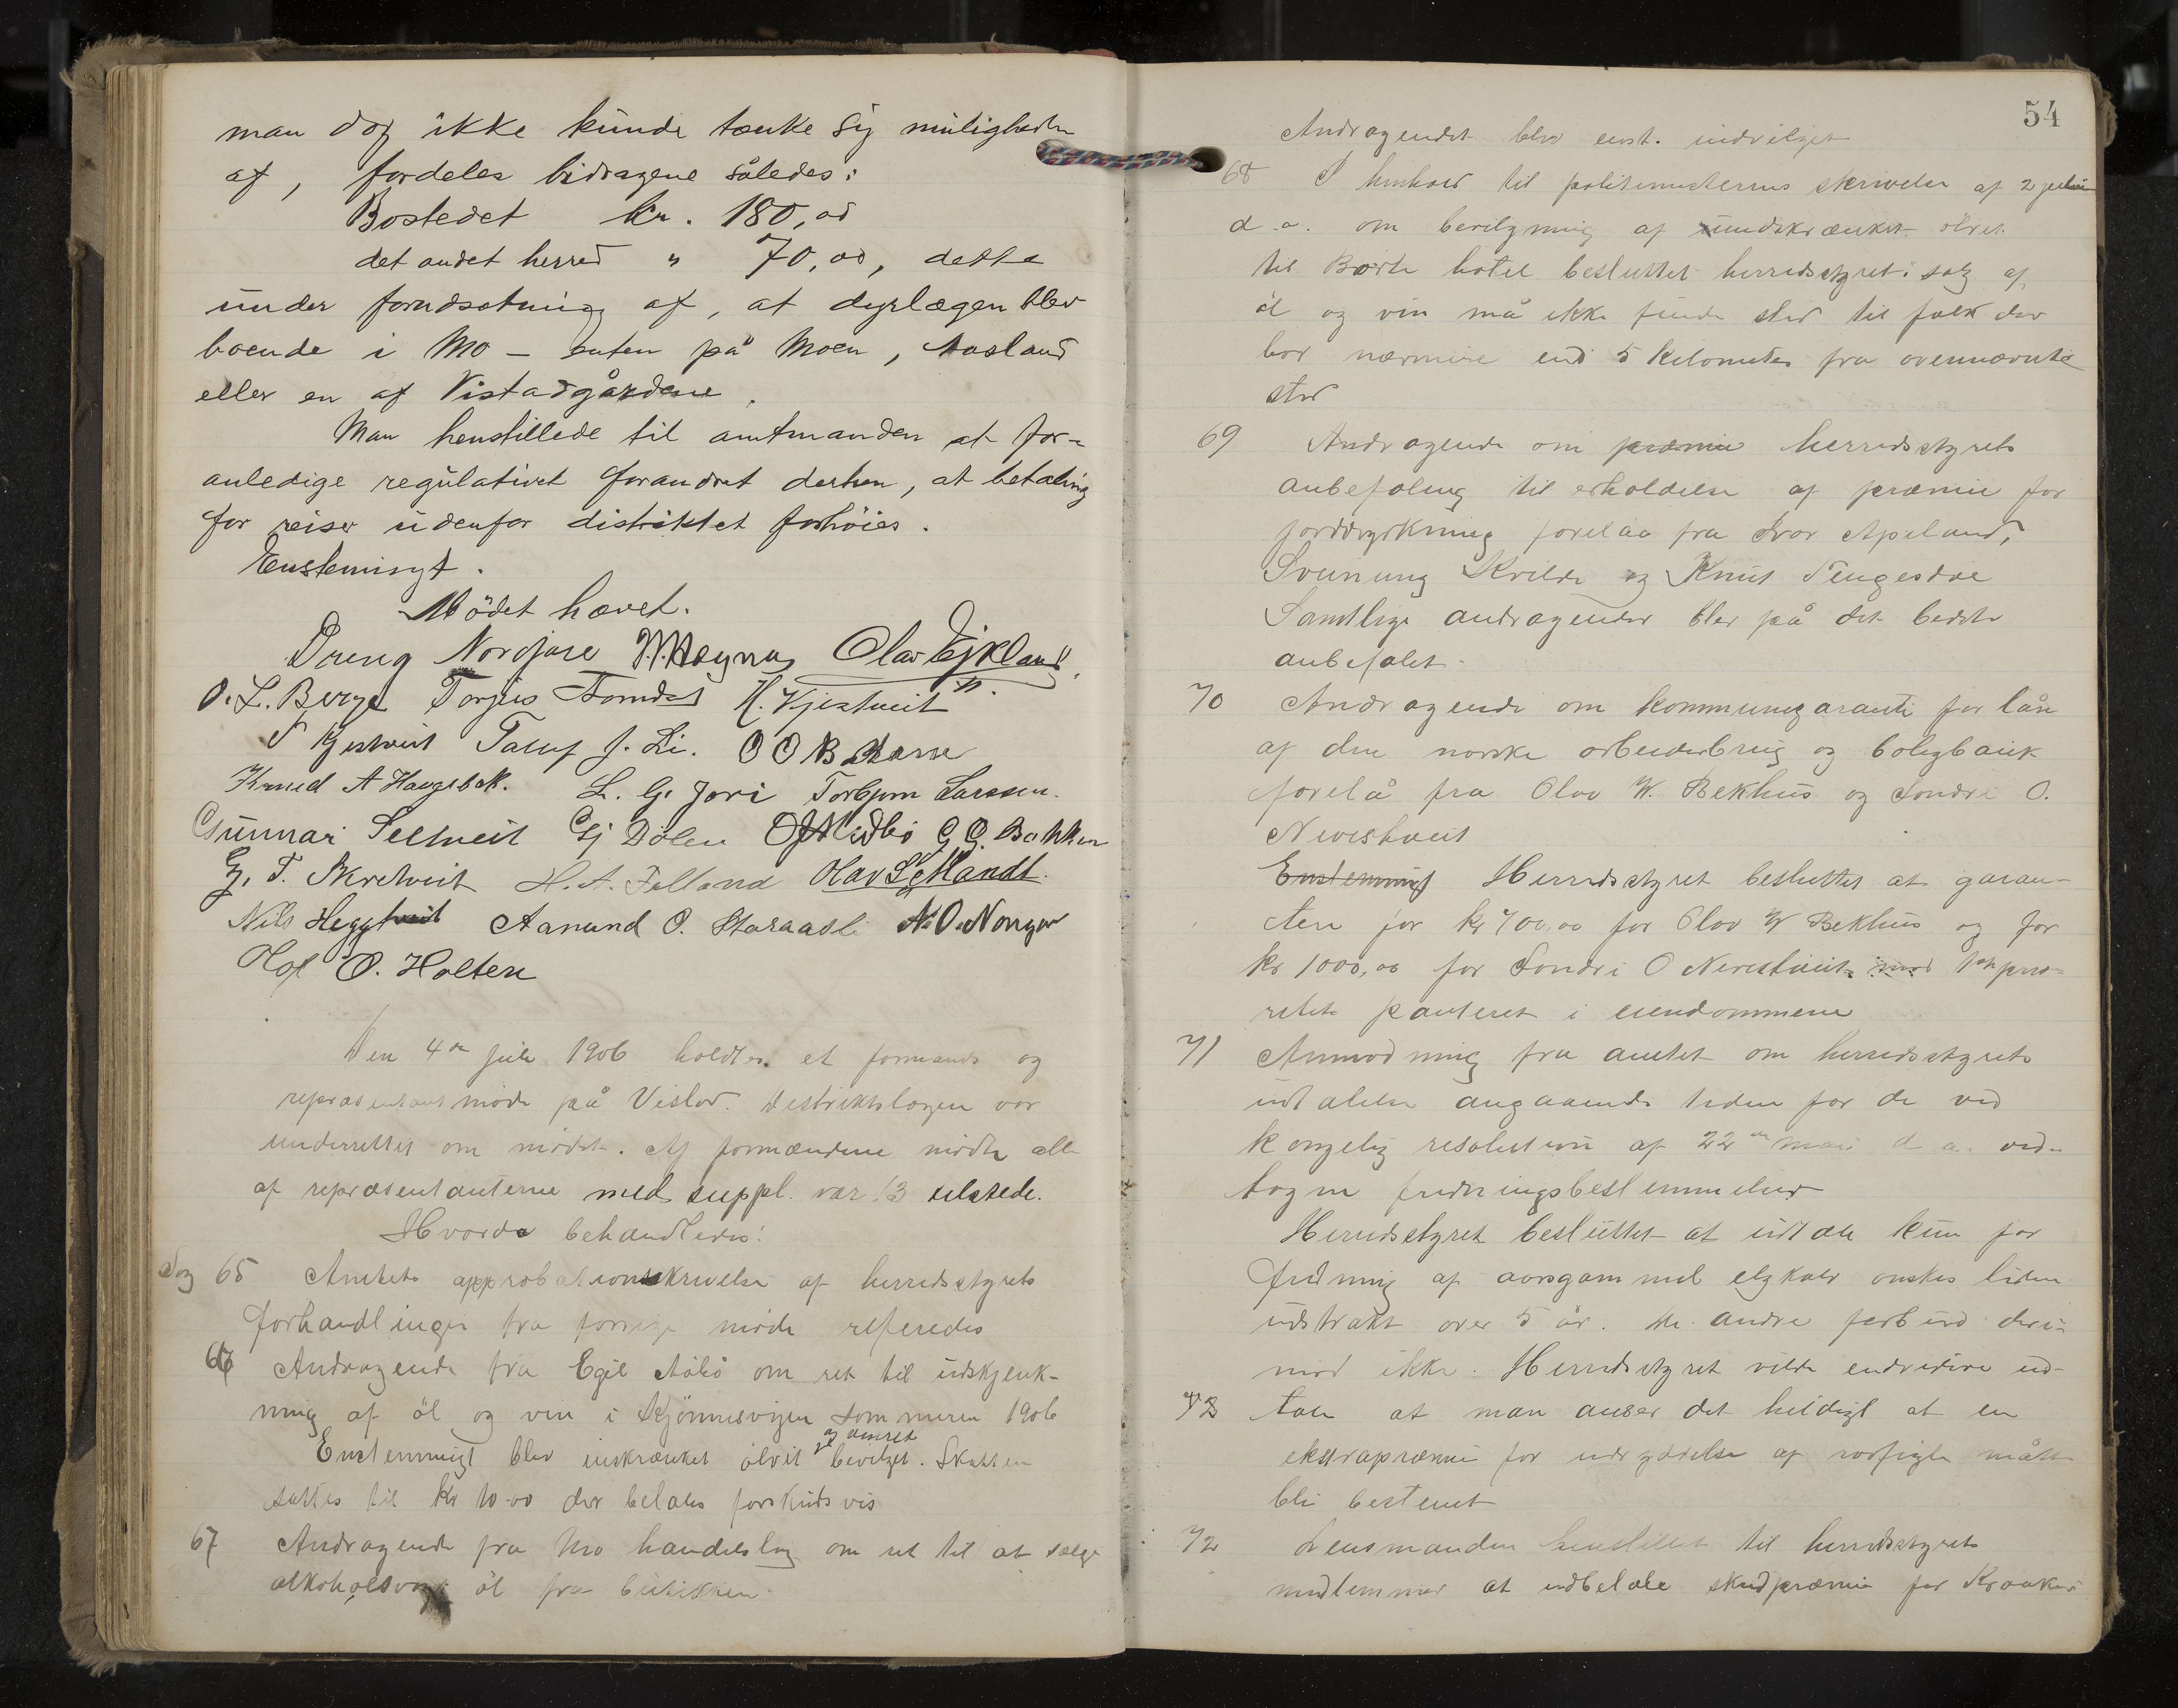 man dog ikke kunde tænke sig muligheden
af, fordeles bidragene således:
Bostedet kr. 180,00
det andet herred " 70,00, dette
under forudsætning af, at dyrlægen blev
boende i Mo — enten på Moen, Aasland
eller en af Vistadgårdene.
Man henstillede til amtmanden at for-
anledige regulativet forandret derhen, at betaling
for reiser udenfor distriktet forhöies.
Enstemigt.
Mödet hævet.
Dreng Nordjore Olav Ejkland
O. L. Berge Torjus H. Kjestveit
Talleif J. Li. O O B
Knud A Haugebak. L. G. Jori Torbjørn Larssen.
Gunnar Seltveit Gj Dölen G. O. Bakken
G. T. Skretveit H. A. Felland Olav Mandt.
Nils Heggtveit Aanund O. Staraasli N. O. Norgar
Olaf O. Holten
Den 4de juli 1906 holdtes et formands og
repræsentant möde på Vislad. Destriktslægen var
underrettet om mödet. Af formændene mödte alle
af repræsentanterne med suppl. var 13 tilstede.
Hvorda behandledes:
Sag 65 Amtets approbationsskrivelse af herredsstyrets
forhandlinger fra forrige möde refereredes
66 Andragende fra Egil om ret til udskjænk-
ning af öl og vin i Kjönnesvigen sommeren 1906
og vinret
Enstemmigt blev inskrænket ölret bevilget. Skatten
sattes til kr 10-00 der betales forskudsvis
67 Andragende fra Mo handelslag om ret til at sælge
alkoholsvagt öl fra butikken
54
Andragendet blev enst. indvilget
68 I henhold til politimesterens skrivelse af 2 juli
d. a. om bevilgning af uindskrænket ölret
til Börte hotel besluttet herredsstyret: salg af
öl og vin må ikke finde sted til folk der
bor nærmere end 5 kilometer fra ovennævnte
sted
69 Andragende om præmie herredsstyrets
anbefaling til erholdelse af præmie for
jorddyrkning forelaa fra Ivar Apeland,
Svenung Kvilde og Knut Tengesdal
Samtlige andragender blev på det bedste
anbefalet.
70 Andragende om kommunegaranti for lån
af den norske arbeiderbrug og boligbank
forelå fra Olav W. Bekhus og Sondre O.
Nerestveit
Enstemmigt Herredsstyret besluttet at garan-
tere for kr 700,00 for Olav W Bekhus og for
kr 1000,00 for Sondre O Nerestveit mod 1ste prio-
ritets panteret i eiendommene
71 Anmodning fra amtet om herredsstyrets
udtalelse angaaende tiden for de ved
kongelig resolution af 22de mai d. a. ved-
tagne fredningsbestemmelser
Herredsstyret besluttet at udtale kun for
fredning af aarsgammel elgkalv önskes tiden
udstrakt over 5 år. De andre forbud deri-
mod ikke. Herredsstyret vilde endvidere ud-
tale at man anser det heldigt at en
ekstrapræmie for udryddelse af rovfugle måtte
bli bestemt
72 Lensmanden henstillet til herredsstyrets
medlemmer at udbetale skudpræmie for Kraaker